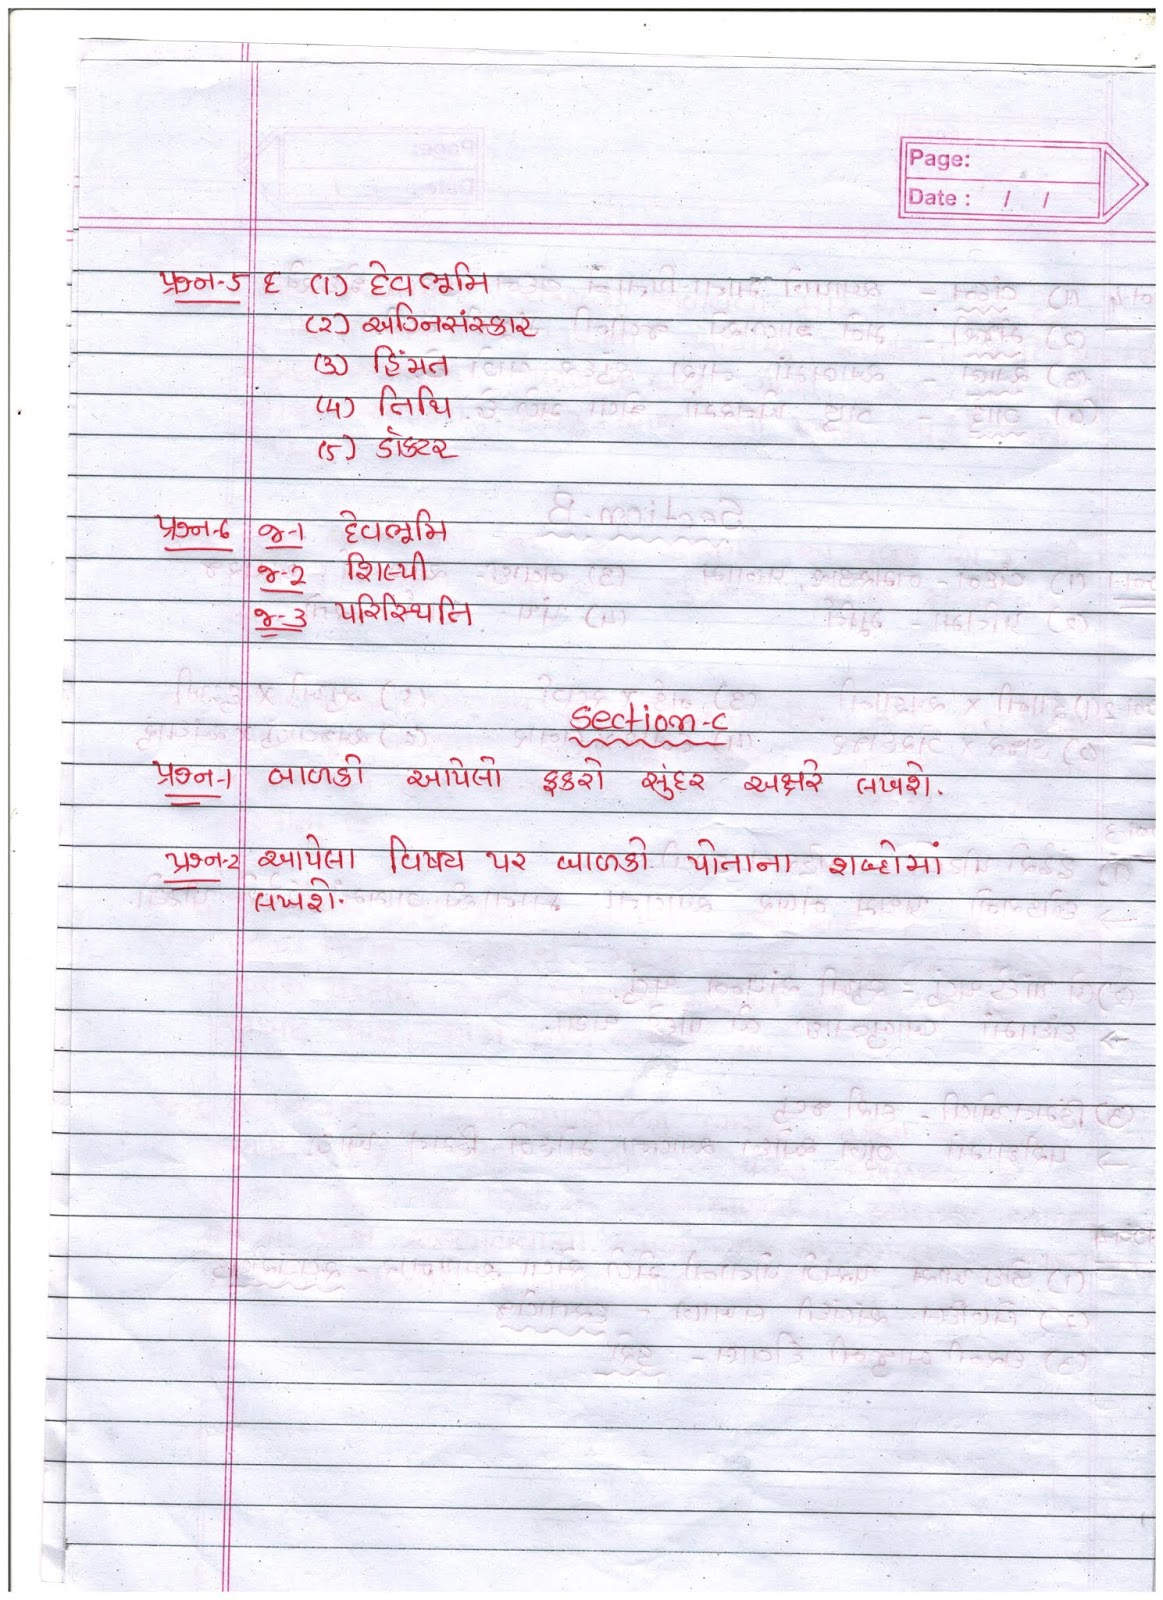 Page:
Date : / /
પ્રશ્ન-5 ૬ (1) દેવભૂમિ
(૨) અગ્નિસંસ્કાર
(૩) હિંમત
(4) તિથિ
(૫) ડોક્ટર
પ્રશ્ન-6 જ-1 દેવભૂમિ
જ-2 શિલ્પી
જ-3 પરિસ્થિતિ
Section-C
પ્રશ્ન-1 બાળકો આપેલો ફકરો સુંદર અક્ષરે લખશે.
પ્રશ્ન-2 આપેલા વિષય પર બાળકો પોતાના શબ્દોમાં
લખશે.